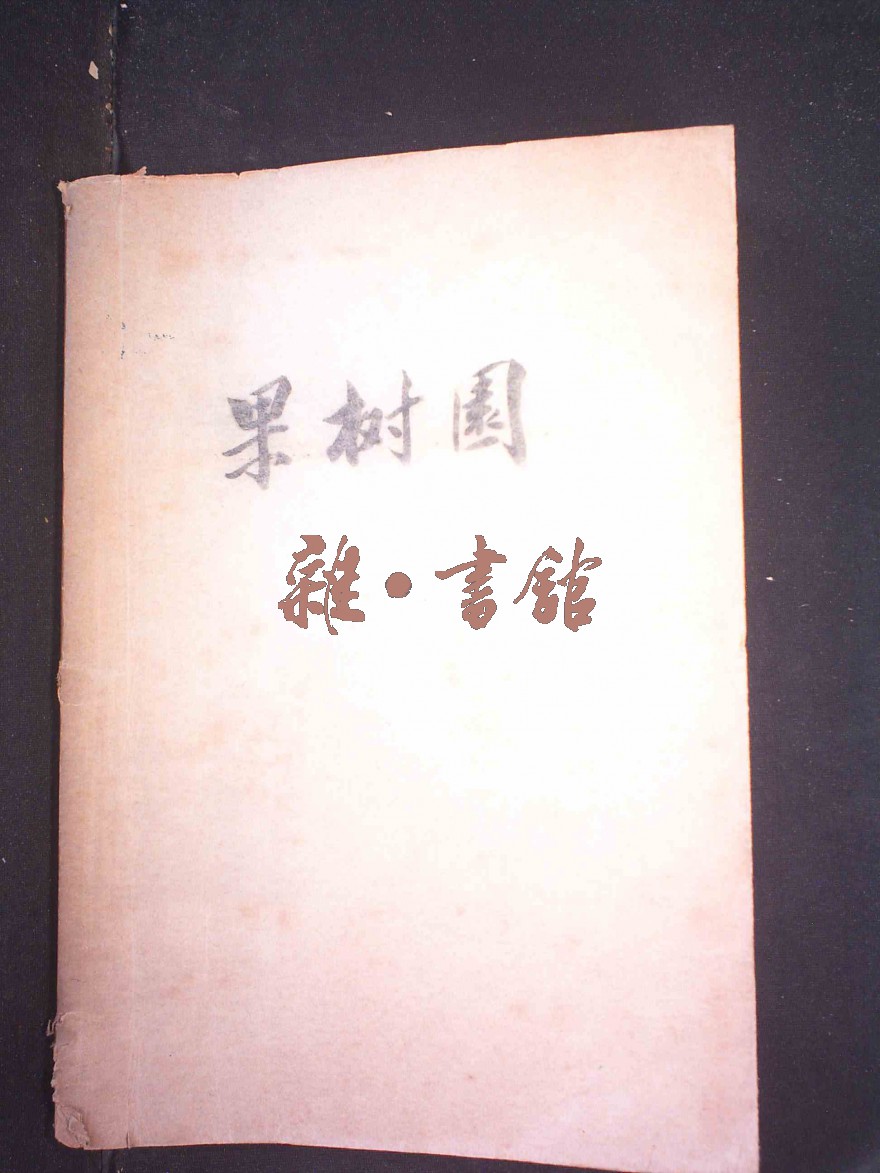 果树园
雜·書館